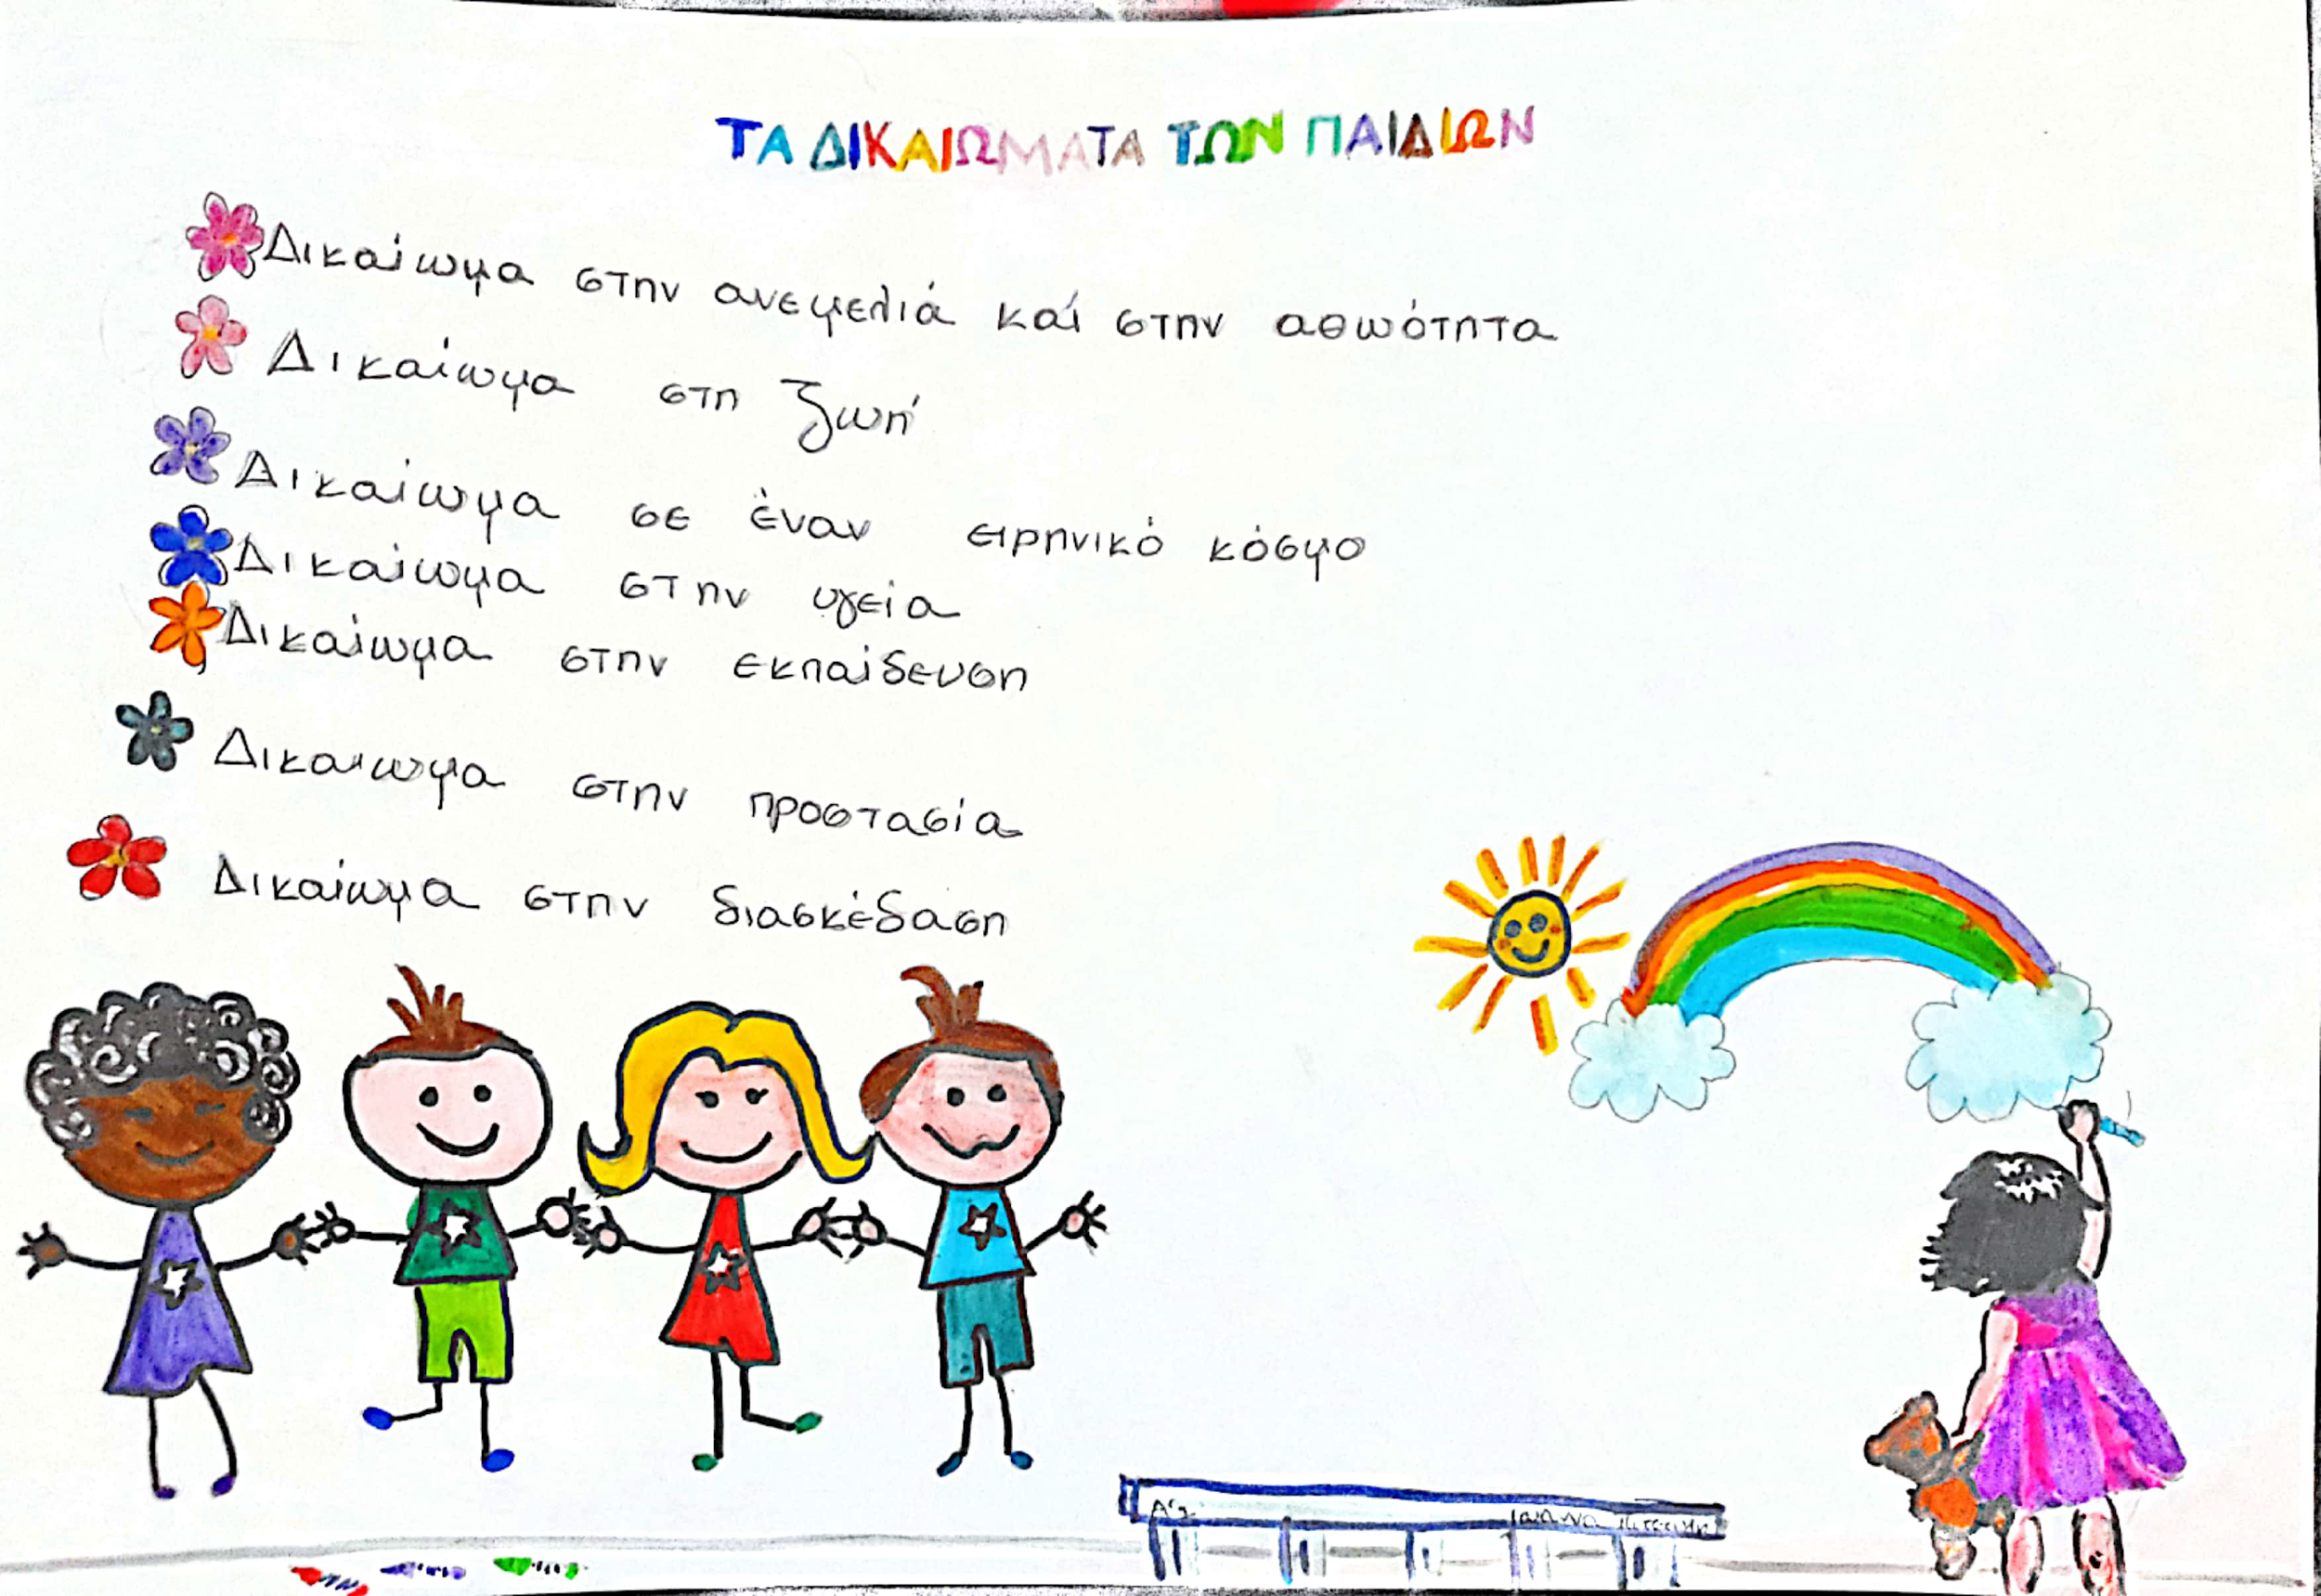 ΤΑ ΔΙΚΑΙΩΜΑΤΑ ΤΩΝ ΠΑΙΔΙΩΝ
Δικαίωμα στην ανεμελιά καί στην αθωότητα
Δικαίωμα στη ζωή
Δικαίωμα σε έναν ειρηνικό κόσμο
Δικαίωμα στην υγεία
Δικαίωμα στην εκπαίδευση
Δικαιωμα στην προστασία
Δικαίωμα στην διασκέδαση